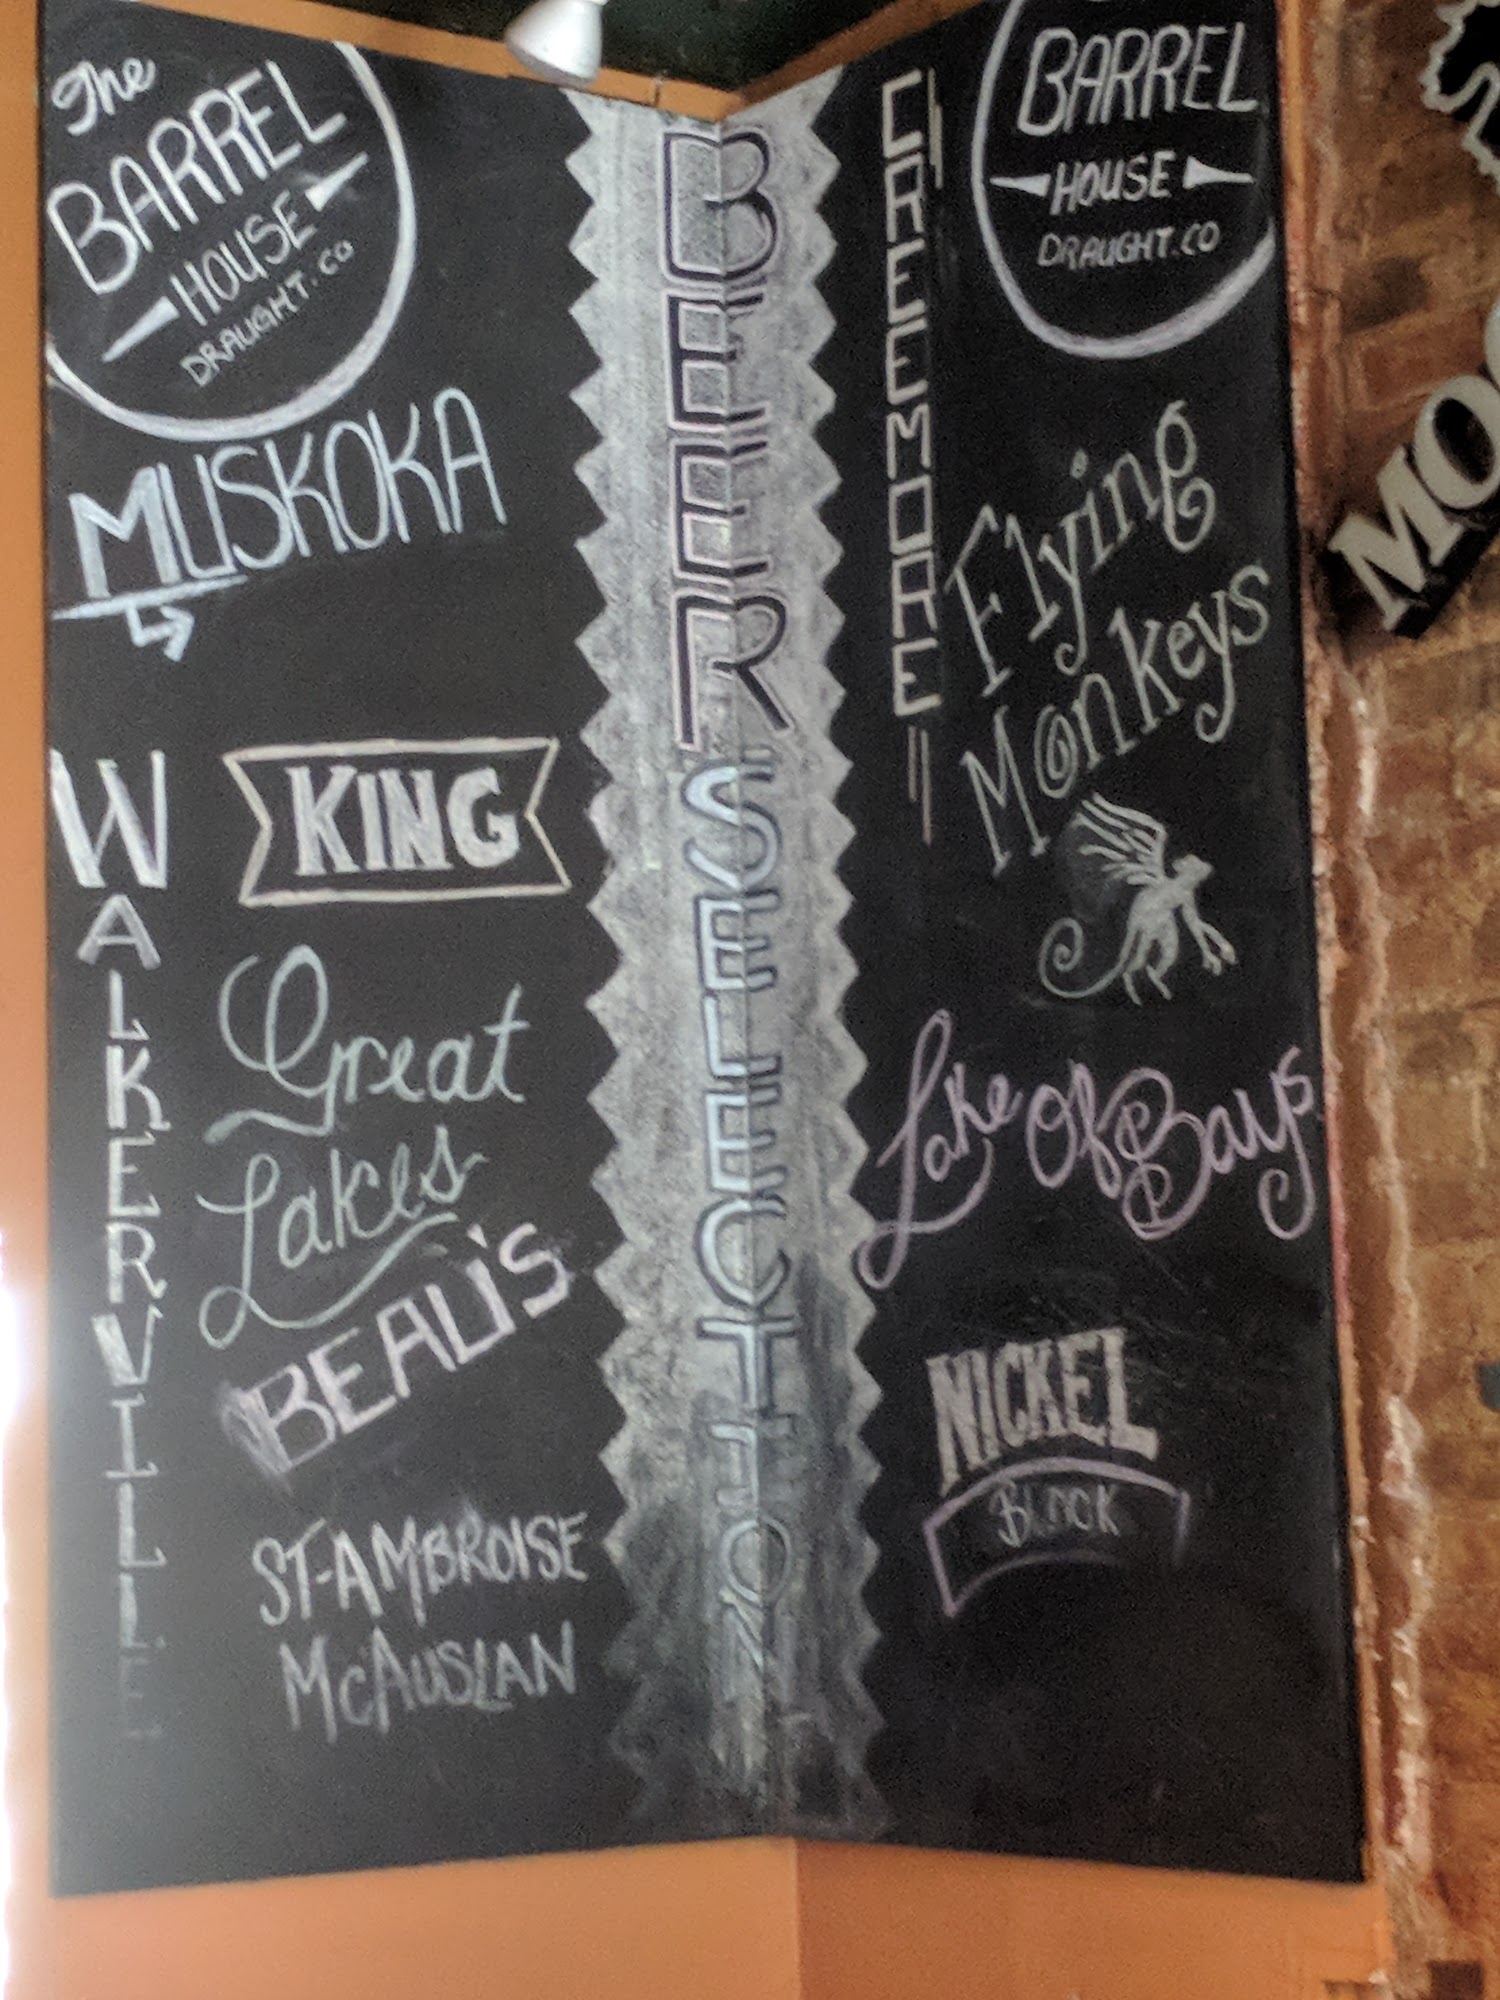 The
BARREL
HOUSE
DRAUGHT.CO
MUSKOKA
WALKERVILLE
KING
Great
Lakes
BEAU'S
ST-AMBROISE
McAUSLAN
BEER SELECTION
CREEMORE
BARREL
HOUSE
DRAUGHT.CO
Flying
Monkeys
Lake Of Bays
NICKEL
BROOK